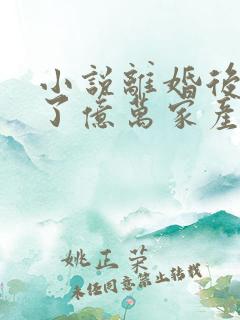 小說離婚後
了億萬家產
姚正菜
未经同意禁止转载